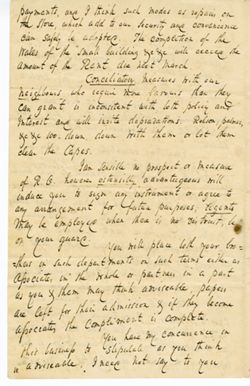 payments, and I think such modes as repairs on
the Store, which add to our security and convenience
can safely be adopted. The completion of the
Walls of the small building &c &c will exceed the
amount of the Rent due next March
Conciliatory measures with our
neighbours who require more favours than they
can grant is inconsistent with both policy and
Interest and will invite depredations.
&c &c down with them or let them
clear the
I am sensible no prospect or measure
of R. O. however ostensibly advantageous will
induce you to sign any instrument or agree to
any arrangement for future purposes, Agents
may be employed when there is no distrust, be
on your guard.
You will place with your
in such departments on such terms either as
Associates in the whole or partners in a part
as you & them may think adviseable, papers
are left for their admission & if they become
associates the Compliment is complete.
You have my concurrence in
this business to stipulate as you think
adviseable, I need not say to you